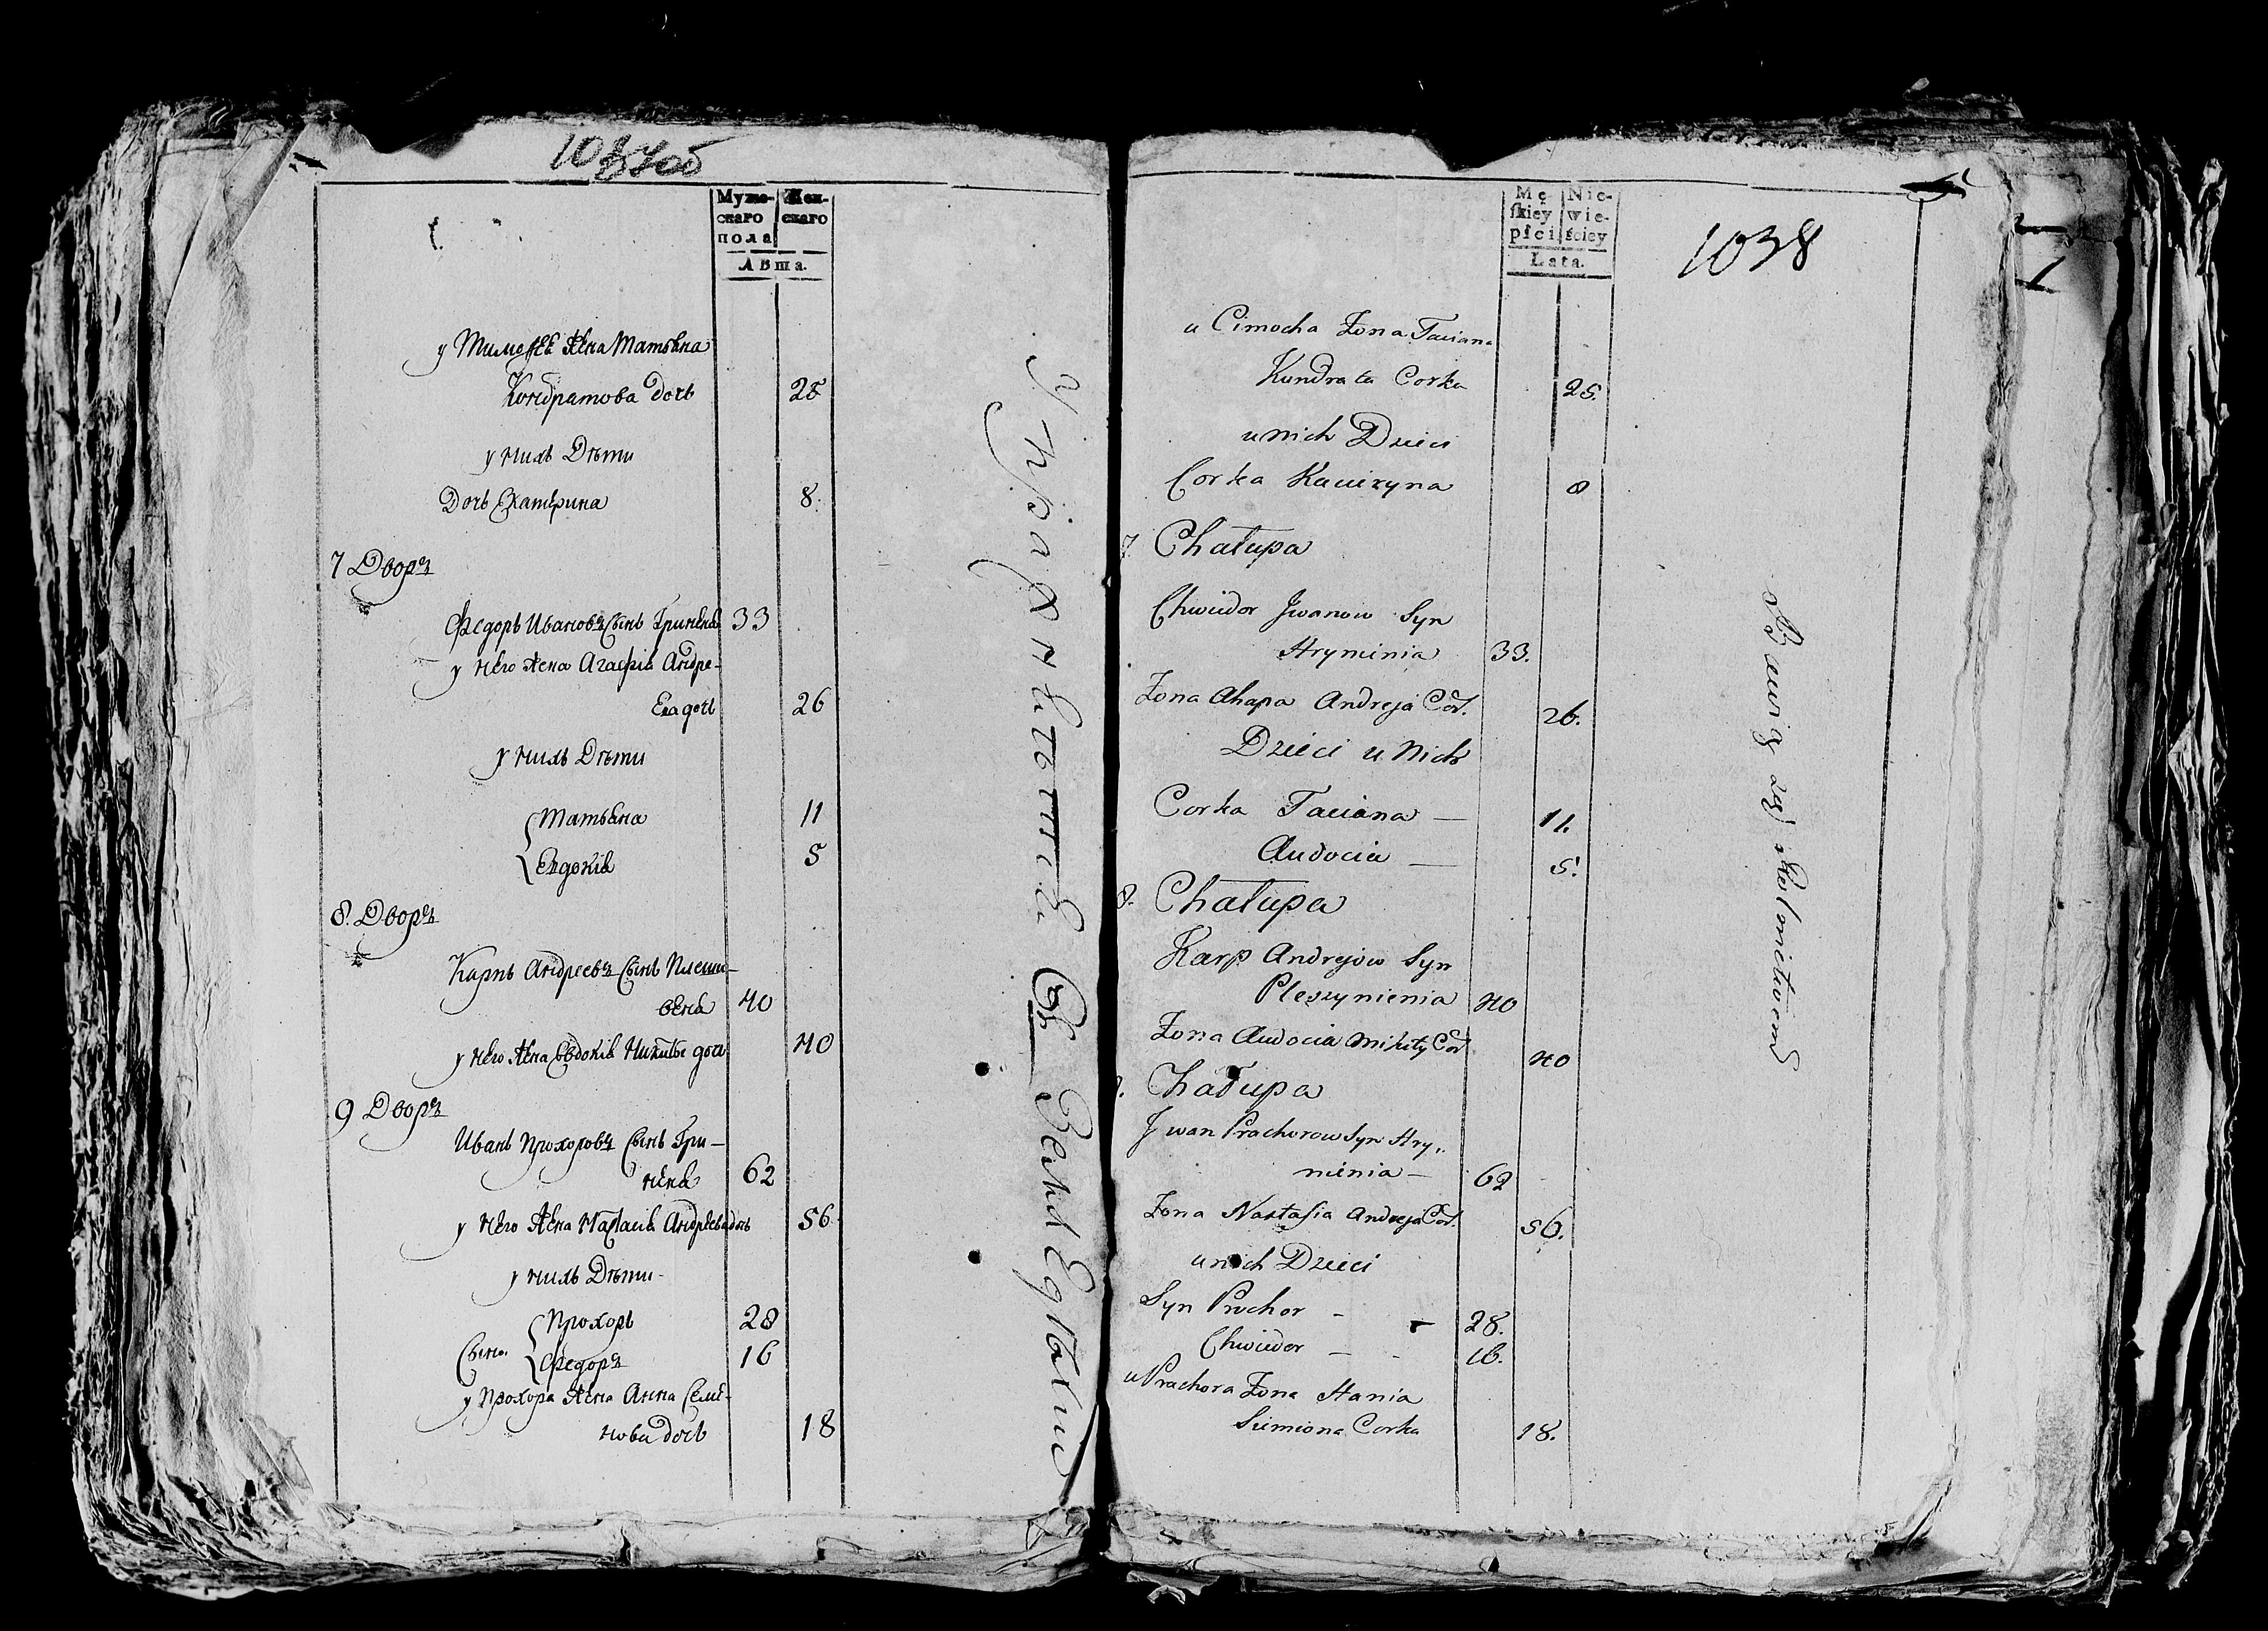 Муже-
скаго
пола
Жен-
скаго
Лѣта.
у Тимофея жена Татьяна
Кондратова дочь 25
у нихъ Дѣти
Дочь Екатерина 8.
7 Дворъ
Федоръ Ивановъ Сынъ Гриненя 33
у него жена Агафія Андре-
ева дочь 26
у нихъ Дѣти
Татьяна 11
Евдокія 5
8. Дворъ
Карпъ Андреевъ Сынъ Плеши-
веня 40
у него жена Евдокія Никиты дочь 40
9 Дворъ
Иванъ Прохоровъ Сынъ Гри-
неня 62
у него жена Настасія Андреева дочь 56
у нихъ Дѣти
Прохоръ 28
Сыны Федоръ 16
у Прохора жена Анна Семе-
нова дочь 18
Mę-
skiey
płci
Nie-
wie-
ściey
Lata.
1038
u Cimocha Żona Taciana
Kundrata Corka 25.
u nich Dzieci
Corka Kacierzyna 8
7. Chałupa
Chwiedor Jwanow Syn
Hryninia 33.
Żona Ahapa Andreja Cor. 26.
Dzieci u Nich
Corka Taciana — 11.
Audocia — 5.
8. Chałupa
Karp Andrejow Syn
Pleszynienia 40
Żona Audocia Mikity Cor 40
Chałupa
Jwan Prachorow Syn Hry„
ninia — 62
Żona Nastasia Andreja Cor. 56.
u nich Dzieci
Syn Prochor - - 28.
Chwiedor - - 16.
u Prachora Żona Hania
Siemiona Corka 18.